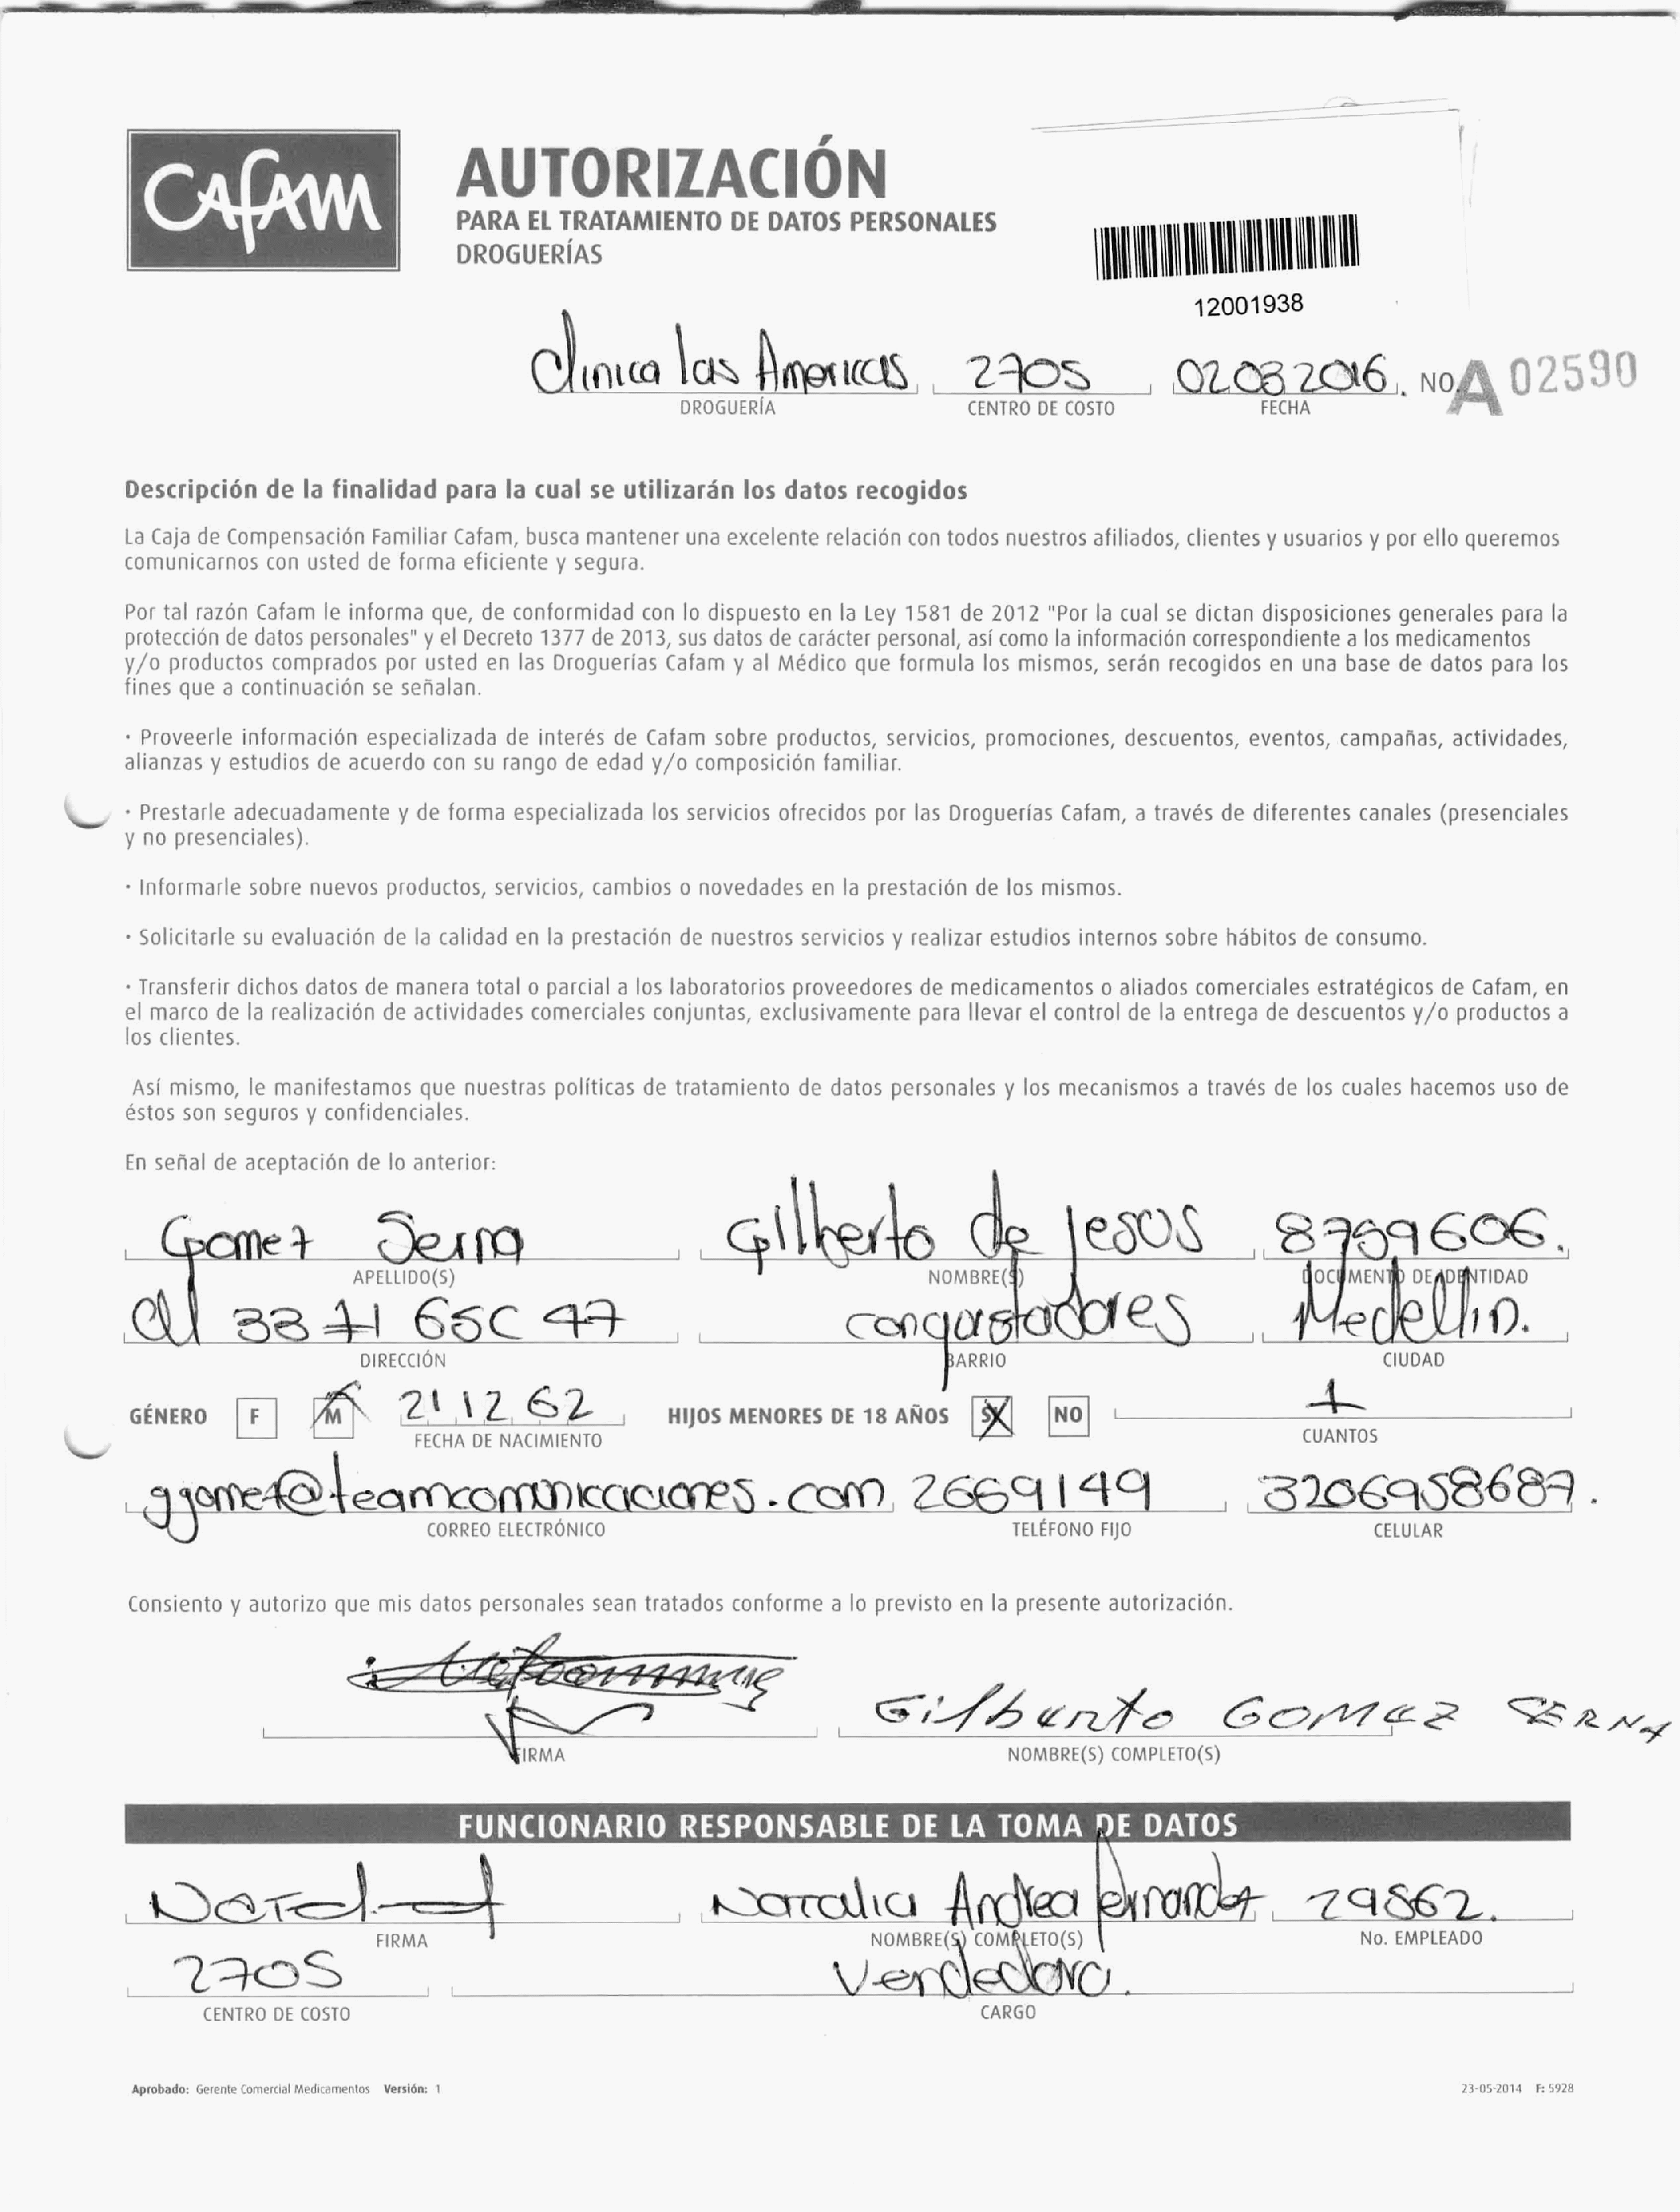 Cafam
AUTORIZACIÓN
PARA EL TRATAMIENTO DE DATOS PERSONALES
DROGUERÍAS
12001938
Clinica las Americas 2705 02082016. NO. A 02590
DROGUERÍA CENTRO DE COSTO FECHA
Descripción de la finalidad para la cual se utilizarán los datos recogidos
La Caja de Compensación Familiar Cafam, busca mantener una excelente relación con todos nuestros afiliados, clientes y usuarios y por ello queremos
comunicarnos con usted de forma eficiente y segura.
Por tal razón Cafam le informa que, de conformidad con lo dispuesto en la Ley 1581 de 2012 "Por la cual se dictan disposiciones generales para la
protección de datos personales" y el Decreto 1377 de 2013, sus datos de carácter personal, así como la información correspondiente a los medicamentos
y/o productos comprados por usted en las Droguerías Cafam y al Médico que formula los mismos, serán recogidos en una base de datos para los
fines que a continuación se señalan.
· Proveerle información especializada de interés de Cafam sobre productos, servicios, promociones, descuentos, eventos, campañas, actividades,
alianzas y estudios de acuerdo con su rango de edad y/o composición familiar.
· Prestarle adecuadamente y de forma especializada los servicios ofrecidos por las Droguerías Cafam, a través de diferentes canales (presenciales
y no presenciales).
· Informarle sobre nuevos productos, servicios, cambios o novedades en la prestación de los mismos.
· Solicitarle su evaluación de la calidad en la prestación de nuestros servicios y realizar estudios internos sobre hábitos de consumo.
· Transferir dichos datos de manera total o parcial a los laboratorios proveedores de medicamentos o aliados comerciales estratégicos de Cafam, en
el marco de la realización de actividades comerciales conjuntas, exclusivamente para llevar el control de la entrega de descuentos y/o productos a
los clientes.
Así mismo, le manifestamos que nuestras políticas de tratamiento de datos personales y los mecanismos a través de los cuales hacemos uso de
éstos son seguros y confidenciales.
En señal de aceptación de lo anterior:
Gomez Serna Gilberto de Jesos 8759606.
APELLIDO(S) NOMBRE(S) DOCUMENTO DE IDENTIDAD
cll 33 # 65C 47 conquistadores Medellin.
DIRECCIÓN BARRIO CIUDAD
GÉNERO F M 21 12 62 HIJOS MENORES DE 18 AÑOS SI NO 1
FECHA DE NACIMIENTO CUANTOS
ggomez@teamcomunicaciones.com 2669149 3206958687.
CORREO ELECTRÓNICO TELÉFONO FIJO CELULAR
Consiento y autorizo que mis datos personales sean tratados conforme a lo previsto en la presente autorización.
Gilberto GOMEZ SERNA
FIRMA NOMBRE(S) COMPLETO(S)
FUNCIONARIO RESPONSABLE DE LA TOMA DE DATOS
Natalia Andrea Fernandez 29862.
FIRMA NOMBRE(S) COMPLETO(S) No. EMPLEADO
2705 Vendedora.
CENTRO DE COSTO CARGO
Aprobado: Gerente Comercial Medicamentos Versión: 1 23-05-2014 F: 5928